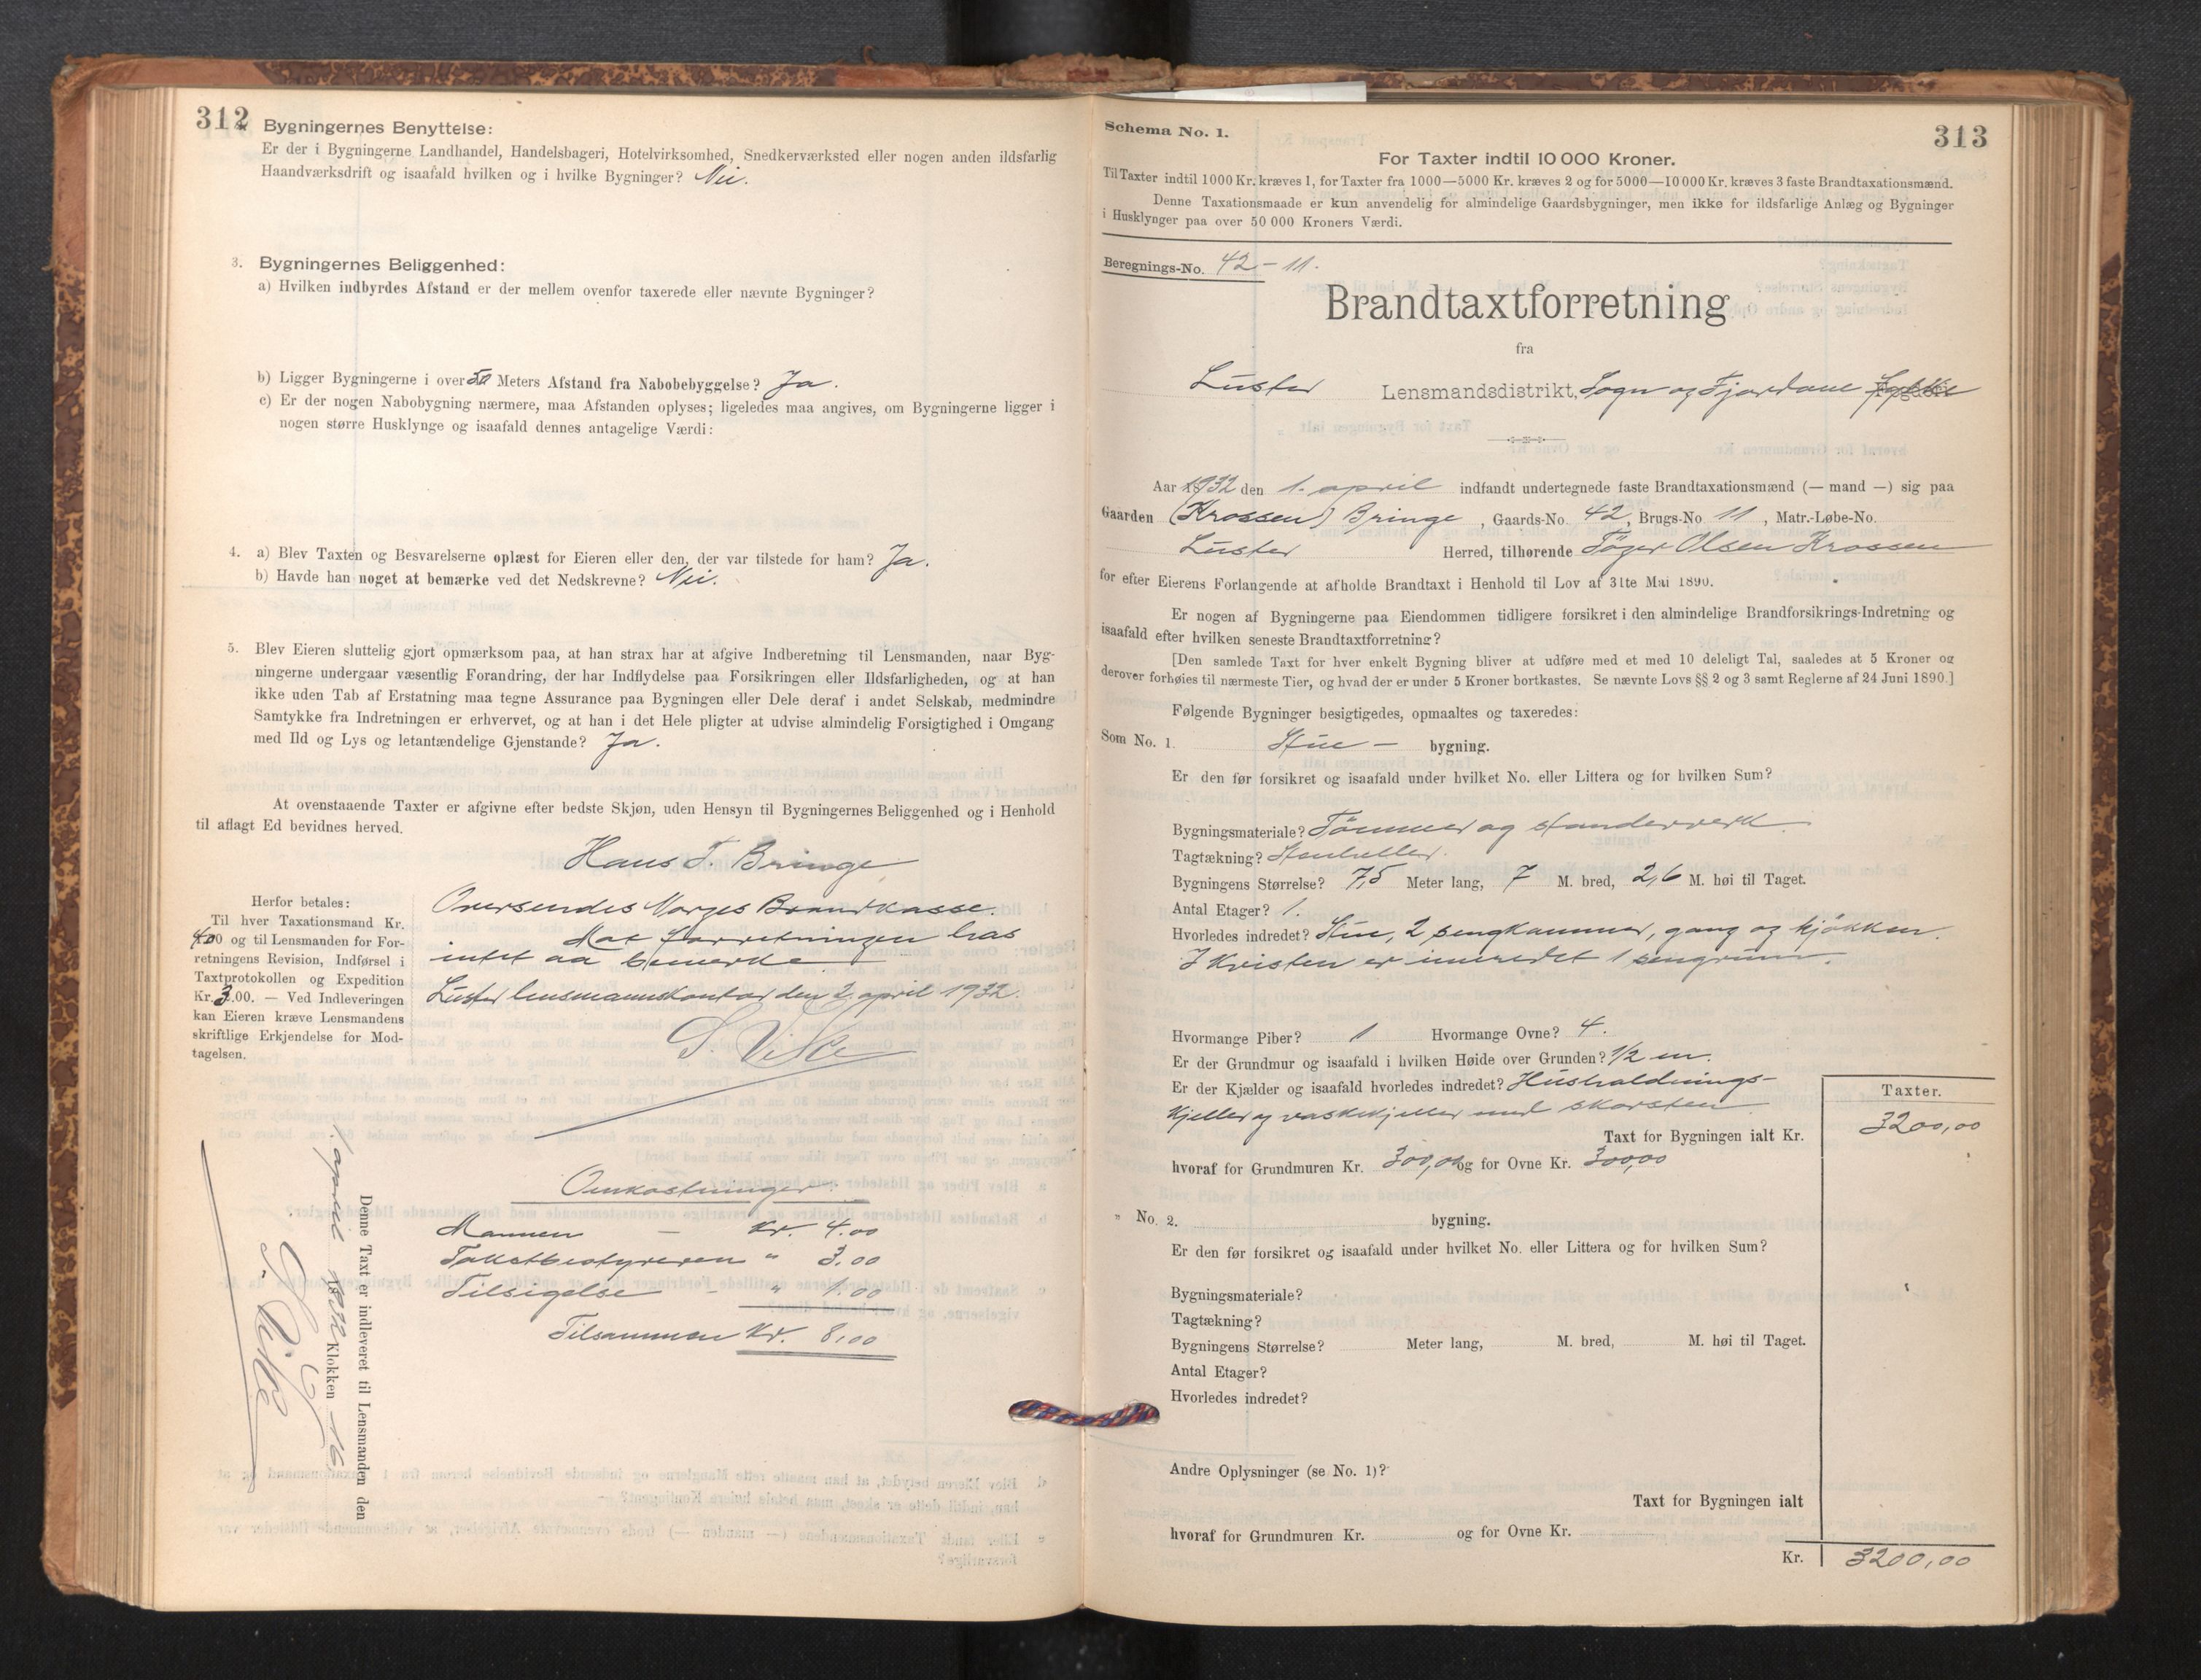 312
Bygningernes Benyttelse:
Er der i Bygningerne Landhandel, Handelsbageri, Hotelvirksomhed, Snedkerværksted eller nogen anden ildsfarlig
Haandværksdrift og isaafald hvilken og i hvilke Bygninger? Nei.
3. Bygningernes Beliggenhed:
a) Hvilken indbyrdes Afstand er der mellem ovenfor taxerede eller nævnte Bygninger?
b) Ligger Bygningerne i over 50 Meters Afstand fra Nabobebyggelse? Ja.
c) Er der nogen Nabobygning nærmere, maa Afstanden oplyses; ligeledes maa angives, om Bygningerne ligger i
nogen større Husklynge og isaafald dennes antagelige Værdi:
4. a) Blev Taxten og Besvarelserne oplæst for Eieren eller den, der var tilstede for ham? Ja.
b) Havde han noget at bemærke ved det Nedskrevne? Nei.
5. Blev Eieren sluttelig gjort opmærksom paa, at han strax har at afgive Indberetning til Lensmanden, naar Byg-
ningerne undergaar væsentlig Forandring, der har Indflydelse paa Forsikringen eller Ildsfarligheden, og at han
ikke uden Tab af Erstatning maa tegne Assurance paa Bygningen eller Dele deraf i andet Selskab, medmindre
Samtykke fra Indretningen er erhvervet, og at han i det Hele pligter at udvise almindelig Forsigtighed i Omgang
med Ild og Lys og letantændelige Gjenstande? Ja.
At ovenstaaende Taxter er afgivne efter bedste Skjøn, uden Hensyn til Bygningernes Beliggenhed og i Henhold
til aflagt Ed bevidnes herved.
Hans T. Bringe
Herfor betales:
Til hver Taxationsmand Kr.
4.00 og til Lensmanden for For-
retningens Revision, Indførsel i
Taxtprotokollen og Expedition
Kr. 3.00. — Ved Indleveringen
kan Eieren kræve Lensmandens
skriftlige Erkjendelse for Mod-
tagelsen.
Oversendes Norges Brannkasse.
Mot forretningen has
intet aa bemerke
Luster lensmannskontor den 2 april 1932.
Denne Taxt er indleveret til Lensmanden den
1 april 1932 Klokken 16
Omkostninger:
Mannen — Kr. 4.00
Takstbestyreren " 3.00
Tilsigelse - " 1.00
Tilsammen Kr. 8,00
313
Schema No. 1.
For Taxter indtil 10 000 Kroner.
Til Taxter indtil 1000 Kr. kræves 1, for Taxter fra 1000—5000 Kr. kræves 2 og for 5000—10 000 Kr. kræves 3 faste Brandtaxationsmænd.
Denne Taxationsmaade er kun anvendelig for almindelige Gaardsbygninger, men ikke for ildsfarlige Anlæg og Bygninger
i Husklynger paa over 50 000 Kroners Værdi.
Beregnings-No. 42 - 11.
Brandtaxtforretning
fra
Luster Lensmandsdistrikt, Sogn og Fjordane Fylke
Aar 1932 den 1. april indfandt undertegnede faste Brandtaxationsmænd (— mand —) sig paa
Gaarden (Krossen) Bringe, Gaards-No. 42, Brugs-No. 11, Matr.-Løbe-No.
Luster Herred, tilhørende Tøger Olsen Krossen
for efter Eierens Forlangende at afholde Brandtaxt i Henhold til Lov af 31te Mai 1890.
Er nogen af Bygningerne paa Eiendommen tidligere forsikret i den almindelige Brandforsikrings-Indretning og
isaafald efter hvilken seneste Brandtaxtforretning?
[Den samlede Taxt for hver enkelt Bygning bliver at udføre med et med 10 deleligt Tal, saaledes at 5 Kroner og
derover forhøies til nærmeste Tier, og hvad der er under 5 Kroner bortkastes. Se nævnte Lovs §§ 2 og 3 samt Reglerne af 24 Juni 1890.]
Følgende Bygninger besigtigedes, opmaaltes og taxeredes:
Som No. 1. Stue — bygning.
Er den før forsikret og isaafald under hvilket No. eller Littera og for hvilken Sum?
Bygningsmateriale? Tømmer og standerverk.
Tagtækning? Stenheller.
Bygningens Størrelse? 7,5 Meter lang, 7 M. bred, 2,6 M. høi til Taget.
Antal Etager? 1.
Hvorledes indredet? Stue, 2 sengkammer, gang og kjøkken.
I kvisten er innredet 1 sengrum.
Hvormange Piber? 1 Hvormange Ovne? 4.
Er der Grundmur og isaafald i hvilken Høide over Grunden? 1/2 m.
Er der Kjælder og isaafald hvorledes indredet? Husholdnings-
kjeller og vaskekjeller med skorsten
Taxter.
Taxt for Bygningen ialt Kr. 3200,00
hvoraf for Grundmuren Kr. 300,00 og for Ovne Kr. 300,00
" No. 2. bygning.
Er den før forsikret og isaafald under hvilket No. eller Littera og for hvilken Sum?
Bygningsmateriale?
Tagtækning?
Bygningens Størrelse? Meter lang, M. bred, M. høi til Taget.
Antal Etager?
Hvorledes indredet?
Andre Oplysninger (se No. 1)?
Taxt for Bygningen ialt
hvoraf for Grundmuren Kr. og for Ovne Kr.
Kr. 3200,00